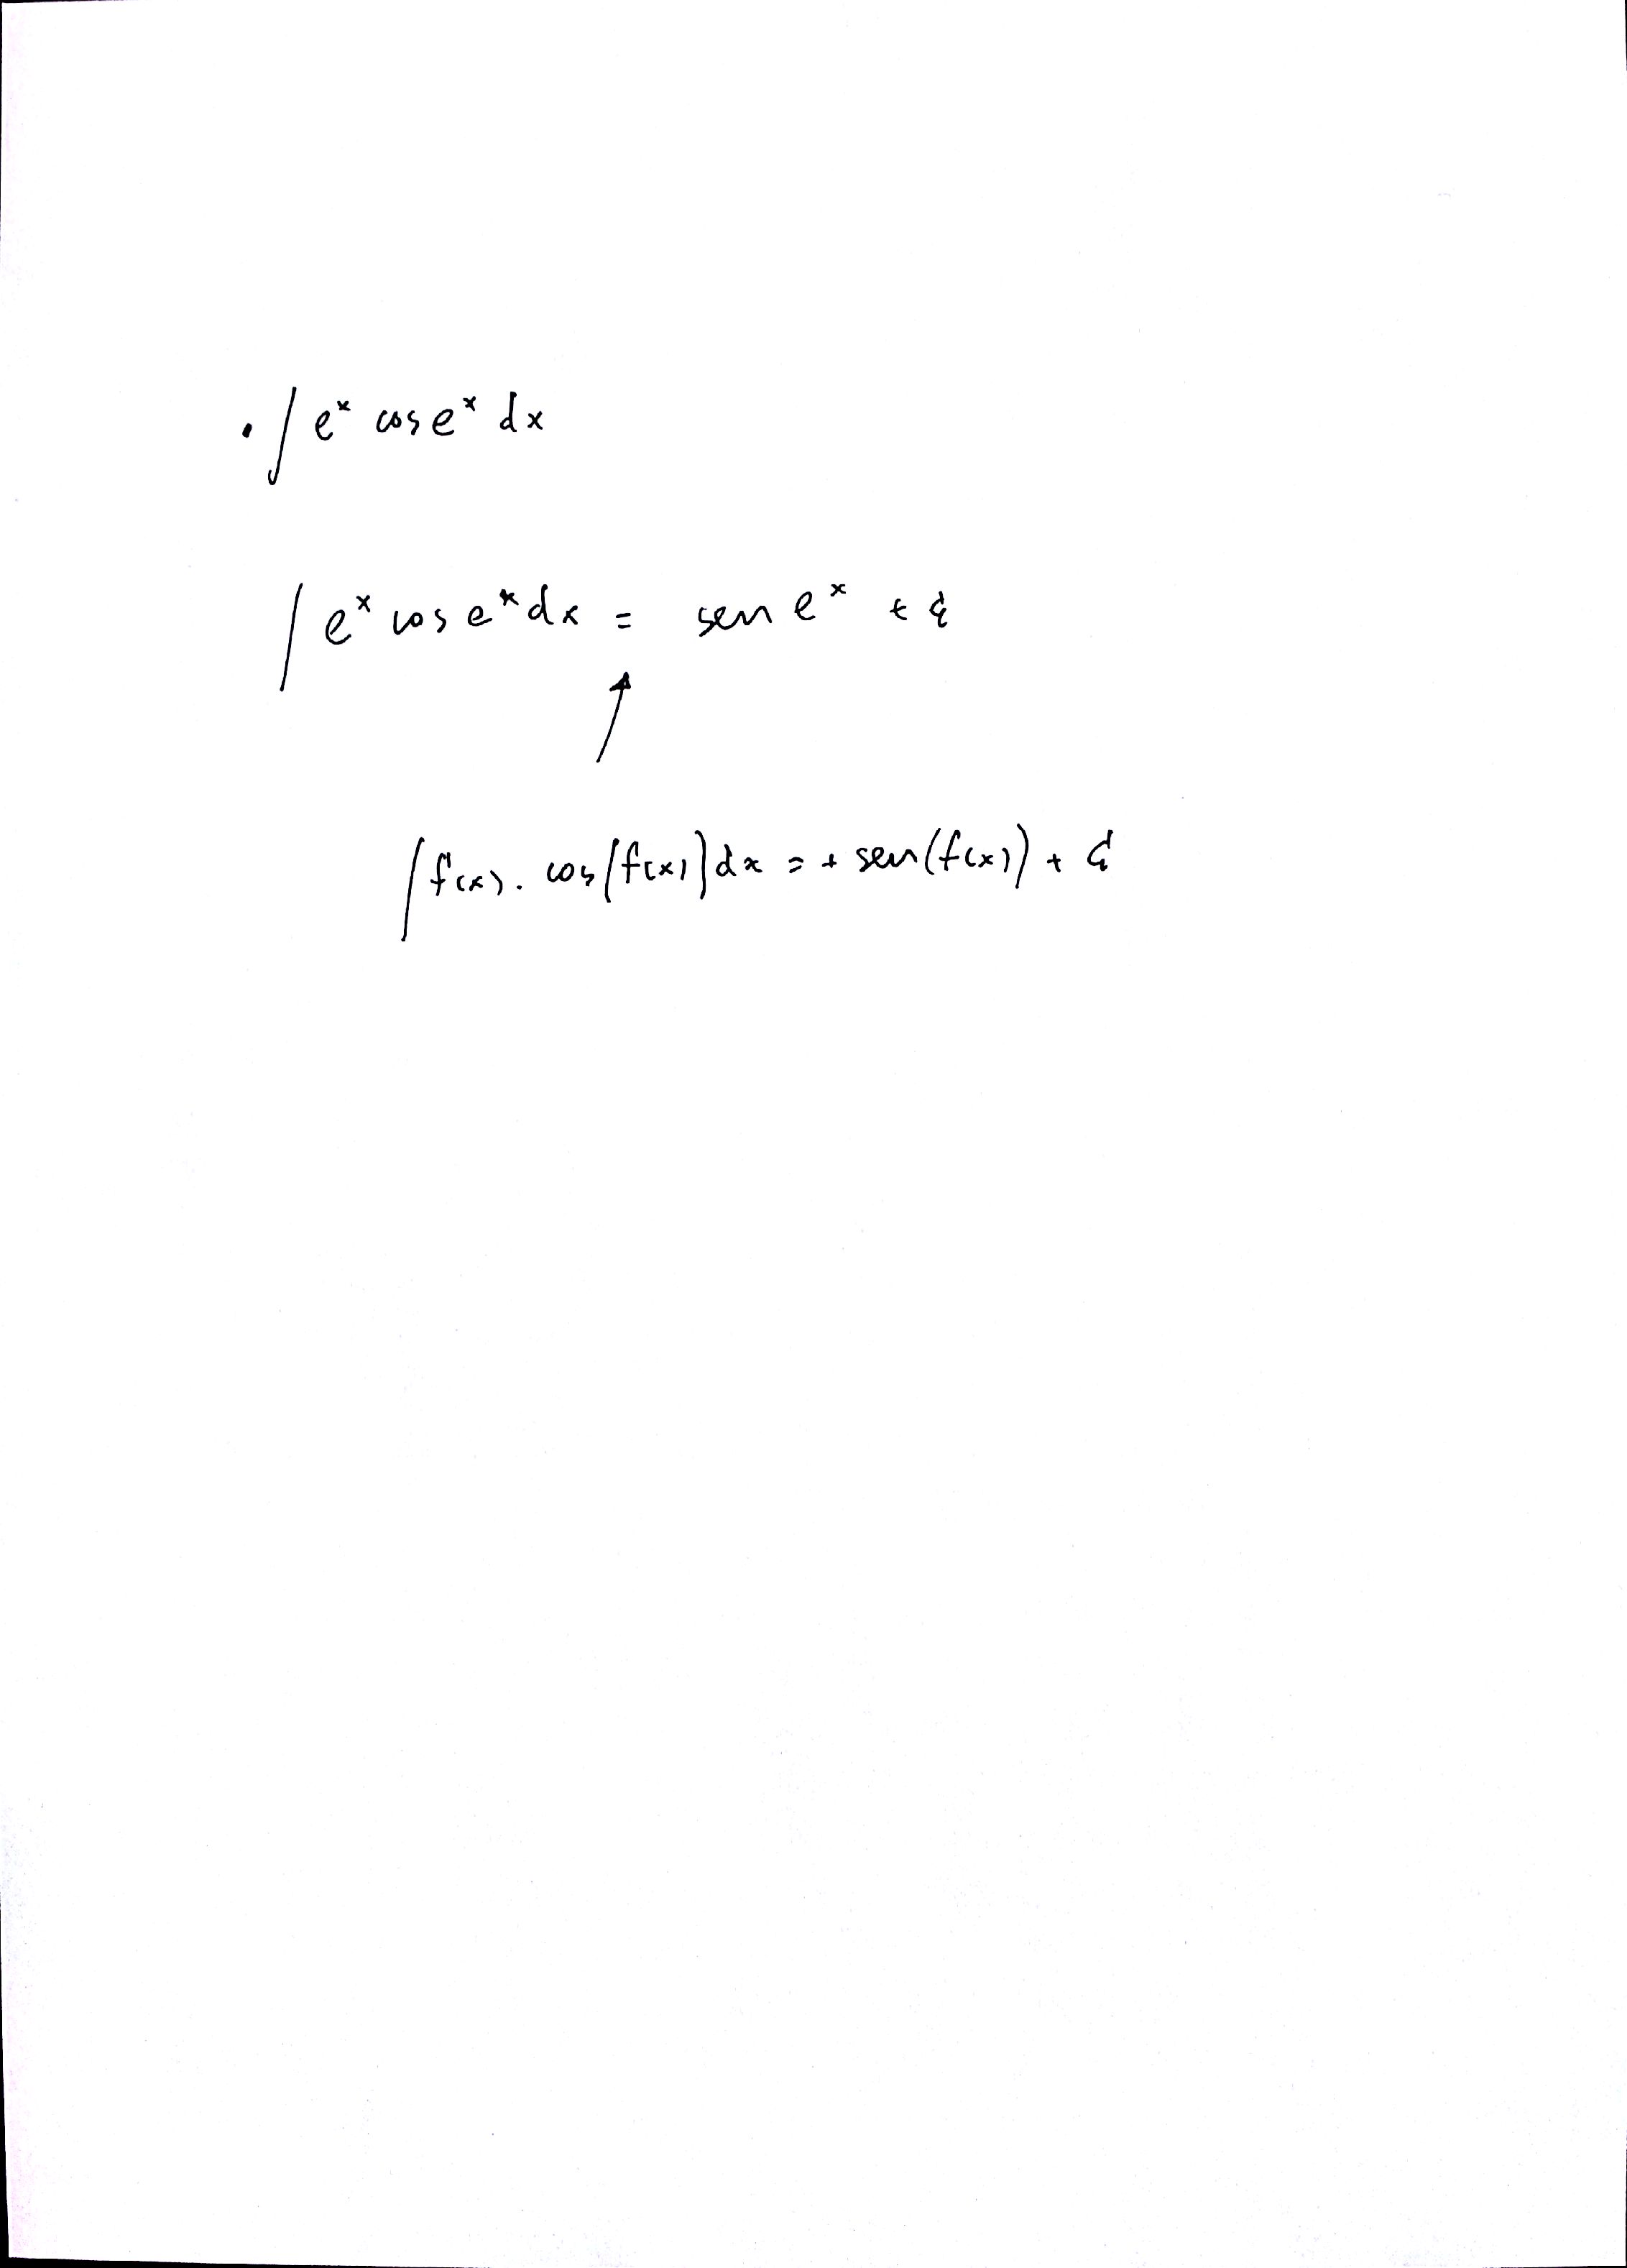 . ∫ eˣ cos eˣ dx
∫ eˣ cos eˣ dx = sen eˣ + C
∫ f'(x) . cos(f(x)) dx = + sen(f(x)) + C